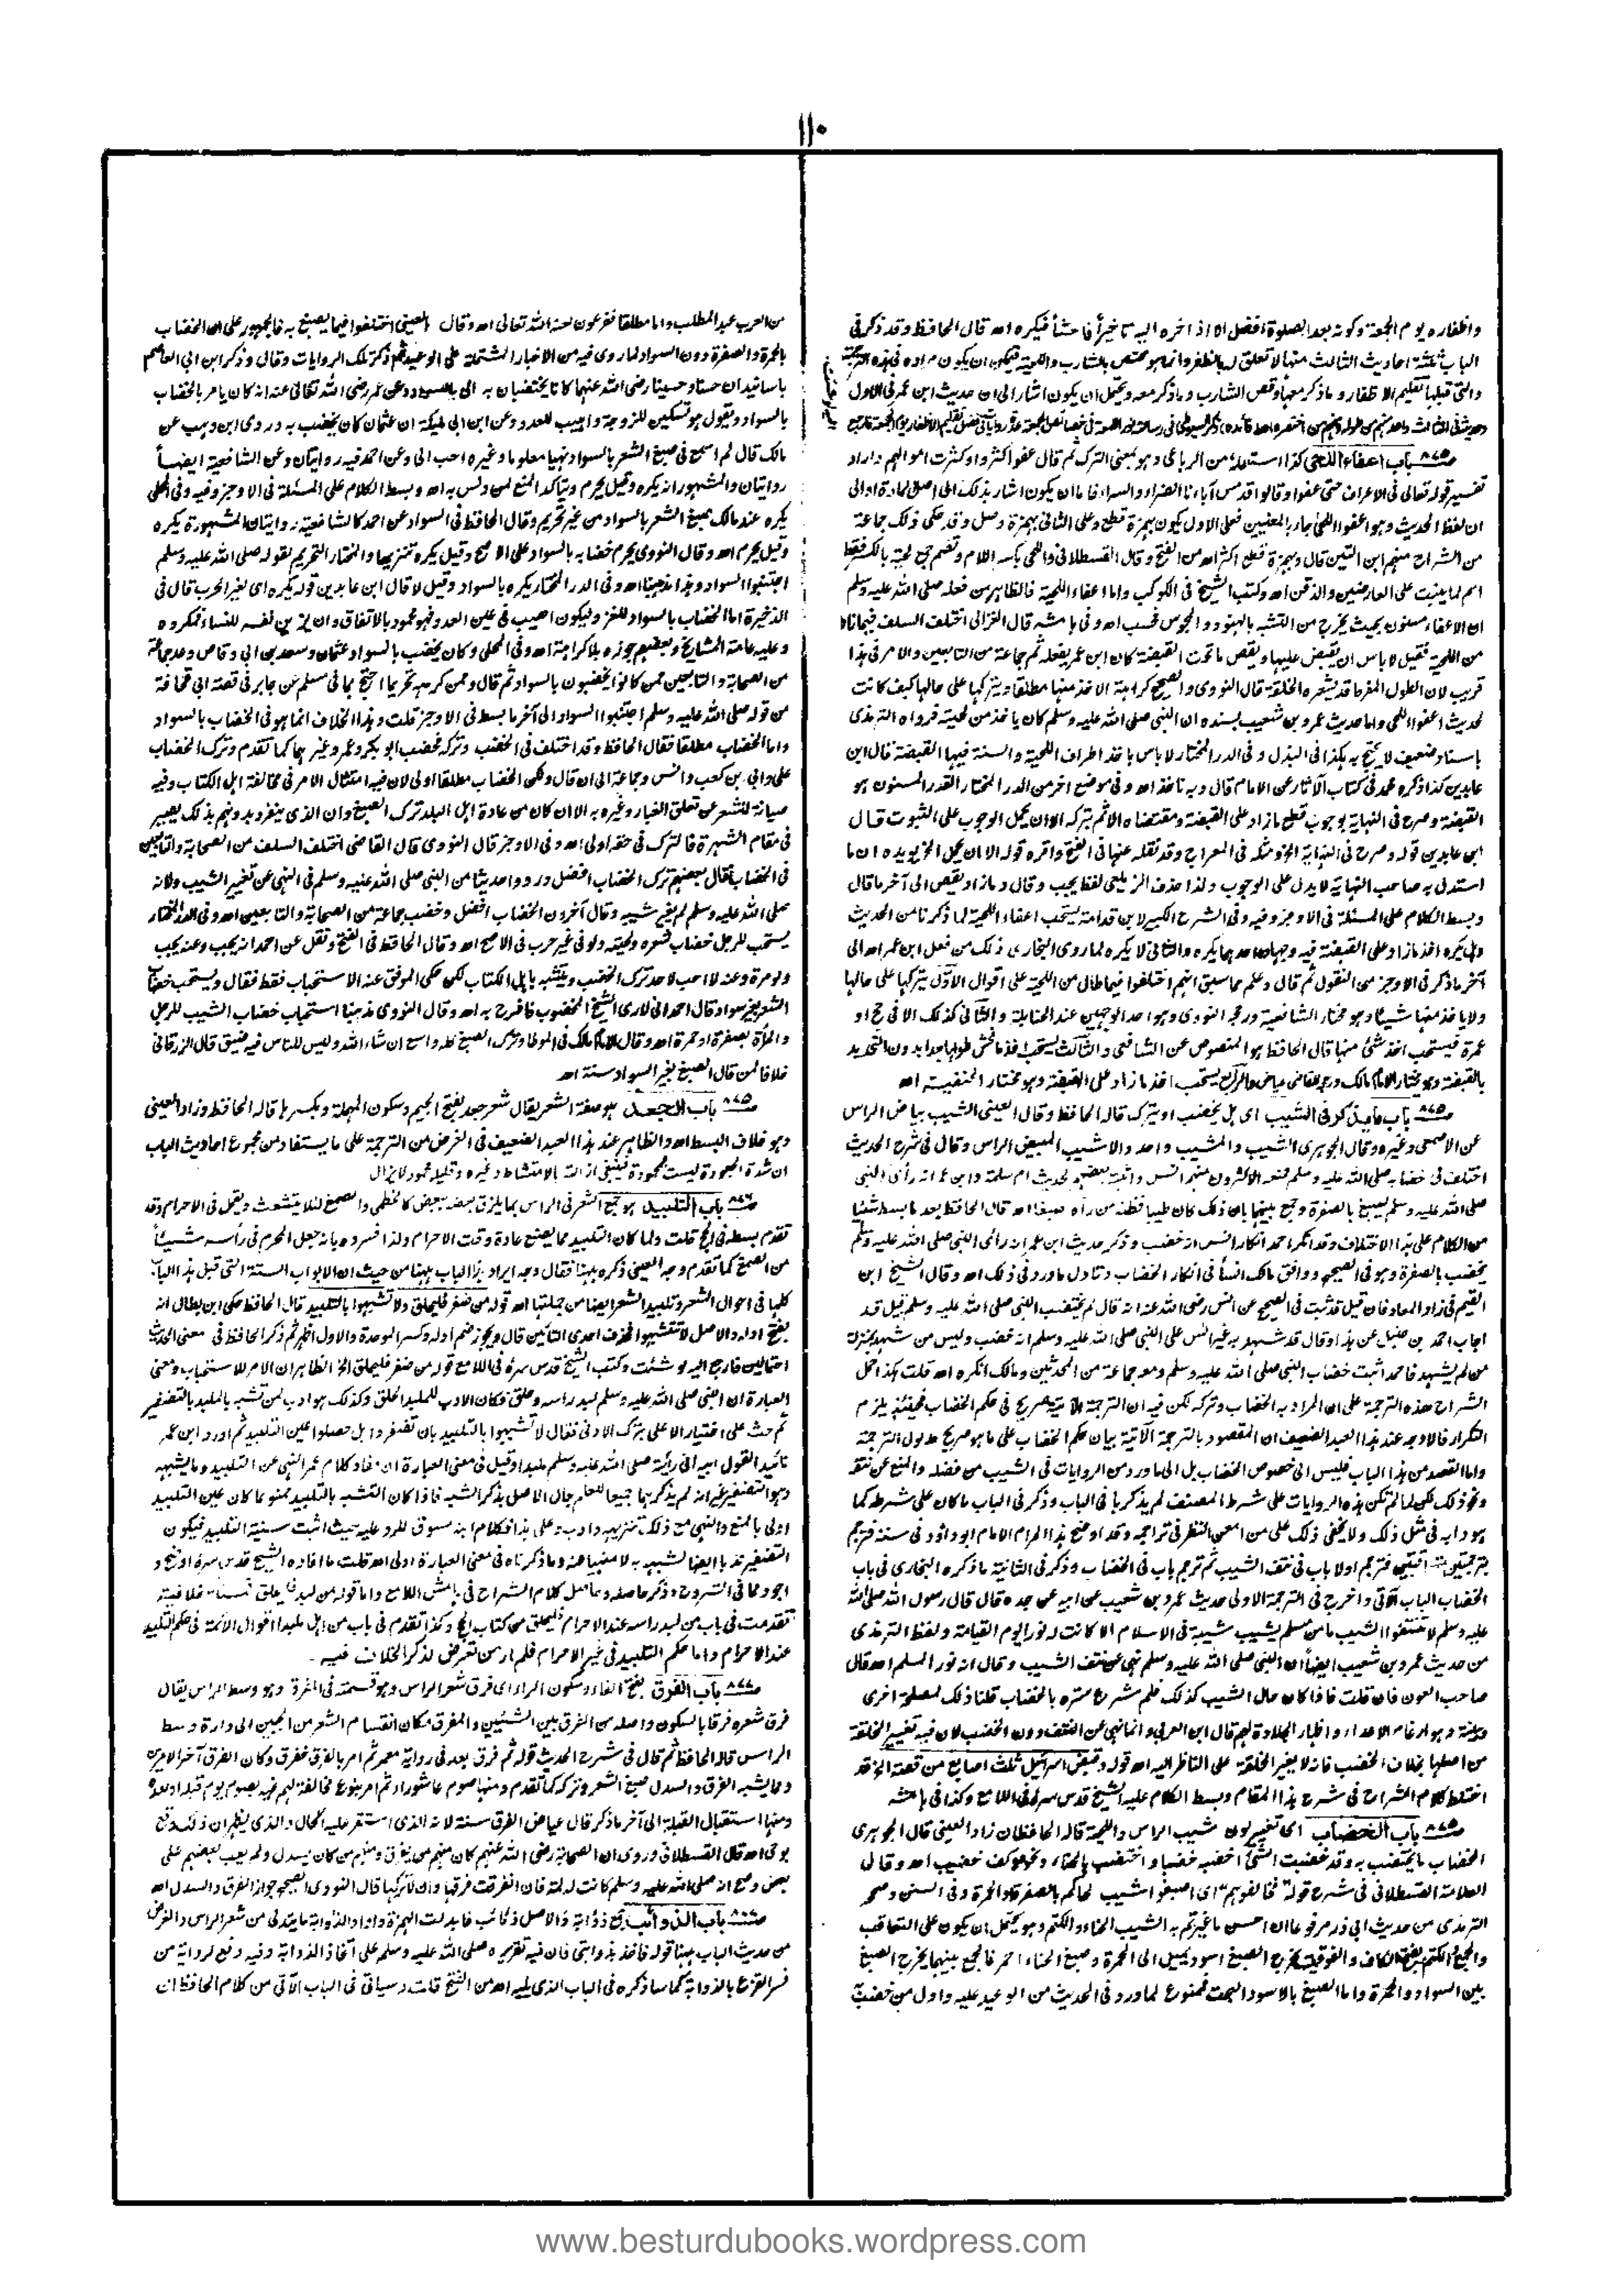 ١١٠
واظفاره يوم الجمعة وكونه بعد الصلوة افضل الا اذا اخره اليه تاخيراً فاحشاً فيكره اه قال الحافظ وقد ذكر في
الباب ثلثة احاديث الثالث منها لا تعلق له بالظفر وانما هو مختص بالشارب واللحية فيمكن ان يكون مراده في هذه الترجمة
والتي قبلها تقليم الاظفار وما ذكر معها وقص الشارب وما ذكر معه ويحتمل ان يكون اشار الى ان حديث ابن عمر في الاول
باب اعفاء اللحى كذا استعمله من الرباعي وهو بمعنى الترك ثم قال عفوا كثروا وكثرت اموالهم واراد
تفسير قوله تعالى في الاعراف حتى عفوا وقالوا قد مس آباءنا الضراء والسراء فاما ان يكون اشار بذلك الى اصل المادة او الى
ان لفظ الحديث وهو اعفوا اللحى جاء بالمعنيين فعلى الاول يكون بهمزة قطع وعلى الثاني بهمزة وصل وقد حكى ذلك جماعة
من الشراح منهم ابن التين قال وبهمزة قطع اكثر اه من الفتح وقال القسطلاني واللحى بكسر اللام وتضم جمع لحية بالكسر فقط
اسم لما ينبت على العارضين والذقن اه وكتب الشيخ في الكوكب واما اعفاء اللحية فالظاهر من فعله صلى الله عليه وسلم
ان الاعفاء مسنون بحيث يخرج من التشبه بالهنود والمجوس فحسب اه وفي هامشه قال الغزالي اختلف السلف فيما زاد
من اللحية فقيل لا باس ان يقبض عليها ويقص ما تحت القبضة كان ابن عمر يفعله ثم جماعة من التابعين والامر في هذا
قريب لان الطول المفرط قد يشوه الخلقة قال النووي والصحيح كراهة الاخذ منها مطلقا ويتركها على حالها كيف كانت
لحديث اعفوا اللحى واما حديث عمرو بن شعيب بسنده ان النبي صلى الله عليه وسلم كان ياخذ من لحيته فرواه الترمذي
باسناد ضعيف لا يحتج به هكذا في البذل وفي الدر المختار لا باس باخذ اطراف اللحية والسنة فيها القبضة قال ابن
عابدين كذا ذكره محمد في كتاب الآثار عن الامام قال وبه ناخذ اه وفي موضع اخر من الدر المختار القدر المسنون هو
القبضة وصرح في النهاية بوجوب قطع ما زاد على القبضة ومقتضاه الاثم بتركه الا ان يحمل الوجوب على الثبوت قال
ابن عابدين قوله وصرح في النهاية الخ ومثله في المعراج وقد نقله عنها في الفتح واقره قوله الا ان يحمل الخ يؤيده ان ما
استدل به صاحب النهاية لا يدل على الوجوب ولذا حذف الزيلعي لفظ يجب وقال وما زاد يقص الى آخر ما قال
وبسط الكلام على المسئلة في الاوجز وفيه وفي الشرح الكبير لابن قدامة يستحب اعفاء اللحية لما ذكرنا من الحديث
وهل يكره اخذ ما زاد على القبضة فيه وجهان احدهما يكره والثاني لا يكره لما روى البخاري ذلك من فعل ابن عمر اه الى
آخر ما ذكر في الاوجز من النقول ثم قال وعلم مما سبق انهم اختلفوا فيما طال من اللحية على اقوال الاول يتركها على حالها
ولا ياخذ منها شيئا وهو مختار الشافعية ورجحه النووي وهو احد الوجهين عند الحنابلة والثاني كذلك الا في حج او
عمرة فيستحب اخذ شئ منها قال الحافظ هو المنصوص عن الشافعي والثالث يستحب اخذ ما فحش طولها جدا بدون التحديد
بالقبضة وهو مختار الامام مالك ورجحه القاضي عياض والرابع يستحب اخذ ما زاد على القبضة وهو مختار الحنفية اه
باب ما يذكر في الشيب اي هل يخضب او يترك قاله الحافظ وقال العيني الشيب بياض الراس
عن الاصمعي وغيره وقال الجوهري الشيب والمشيب واحد والاشيب المبيض الراس وقال في شرح الحديث
اختلف في خضابه صلى الله عليه وسلم فمنعه الاكثرون منهم انس واثبته بعضهم لحديث ام سلمة وابن عمر انه رأى النبي
صلى الله عليه وسلم يصبغ بالصفرة وجمع بينهما بان ذلك كان طيبا فظنه من رآه صبغا اه قال الحافظ بعد ما بسط شيئا
من الكلام على هذا الاختلاف وقد انكر احمد انكار انس انه خضب وذكر حديث ابن عمر انه رأى النبي صلى الله عليه وسلم
يخضب بالصفرة وهو في الصحيح ووافق مالك انساً في انكار الخضاب وتاول ما ورد في ذلك اه وقال الشيخ ابن
القيم في زاد المعاد فان قيل قد ثبت في الصحيح عن انس رضي الله عنه انه قال لم يختضب النبي صلى الله عليه وسلم قيل قد
اجاب احمد بن حنبل عن هذا وقال قد شهد به غير انس على النبي صلى الله عليه وسلم انه خضب وليس من شهد بمنزلة
من لم يشهد فاحمد اثبت خضاب النبي صلى الله عليه وسلم ومعه جماعة من المحدثين ومالك انكره اه قلت هكذا حمل
الشراح هذه الترجمة على ان المراد به الخضاب وتركه لكن فيه ان الترجمة الآتية صريح في حكم الخضاب فحينئذ يلزم
التكرار فالاوجه عند هذا العبد الضعيف ان المقصود بالترجمة الآتية بيان حكم الخضاب على ما هو صريح مدلول الترجمة
واما القصد من هذا الباب فليس الى خصوص الخضاب بل الى ما ورد من الروايات في الشيب من فضله والمنع عن نتفه
ونحو ذلك لكن لما لم تكن هذه الروايات على شرط المصنف لم يذكرها في الباب وذكر في الباب ما كان على شرطه كما
هو دابه في مثل ذلك ولا يخفى ذلك على من امعن النظر في تراجمه وقد اوضح هذا المرام الامام ابو داؤد في سننه فترجم
فترجم اولا باب في نتف الشيب ثم ترجم باب في الخضاب وذكر في الثانية ما ذكره البخاري في باب
الخضاب الباب الآتي واخرج في الترجمة الاولى حديث عمرو بن شعيب عن ابيه عن جده قال قال رسول الله صلى الله
عليه وسلم لا تنتفوا الشيب ما من مسلم يشيب شيبة في الاسلام الا كانت له نورا يوم القيامة ولفظ الترمذي
من حديث عمرو بن شعيب ايضاً ان النبي صلى الله عليه وسلم نهى عن نتف الشيب وقال انه نور المسلم اه قال
صاحب العون فان قلت فاذا كان حال الشيب كذلك فلم شرع ستره بالخضاب قلنا ذلك لمصلحة اخرى
دينية وهو ارغام الاعداء واظهار الجلادة لهم قال ابن العربي وانما نهى عن النتف دون الخضب لان فيه تغيير الخلقة
من اصلها بخلاف الخضب فانه لا يغير الخلقة على الناظر اليه اه قوله وقبض اسرائيل ثلث اصابع من قصة الخ قد
اختلط كلام الشراح في شرح هذا المقام وبسط الكلام عليه الشيخ قدس سره في اللامع وكذا في هامشه
باب الخضاب اي تغيير لون شيب الراس واللحية قاله الحافظان زاد العيني قال الجوهري
الخضاب ما يختضب به وقد خضبت الشئ اخضبه خضبا واختضب بالحناء ونحوه وكف خضيب اه وقال
العلامة القسطلاني في شرح قوله فخالفوهم اي اصبغوا شيب لحاكم بالصفرة او الحمرة وفي السنن وصححه
الترمذي من حديث ابي ذر مرفوعا ان احسن ما غيرتم به الشيب الحناء والكتم وهو يحتمل ان يكون على التعاقب
والجمع والكتم بفتح الكاف والفوقية يخرج الصبغ اسود يميل الى الحمرة وصبغ الحناء احمر فالجمع بينهما يخرج الصبغ
بين السواد والحمرة واما الصبغ بالاسود البحت فممنوع لما ورد في الحديث من الوعيد عليه واول من خضب به
من العرب عبد المطلب واما مطلقا ففرعون لعنه الله تعالى اه وقال العيني اختلفوا فيما يصبغ به فالجمهور على ان الخضاب
بالحمرة والصفرة دون السواد لما روى فيه من الاخبار المشتملة على الوعيد ثم ذكر تلك الروايات وقال وذكر ابن ابي العاصم
باسانيد ان حسنا وحسينا رضي الله عنهما كانا يختضبان به اى بالسواد وعن عمر رضي الله تعالى عنه انه كان يامر بالخضاب
بالسواد ويقول هو تسكين للزوجة واهيب للعدو وعن ابن ابي مليكة ان عثمان كان يخضب به وروى ابن وهب عن
مالك قال لم اسمع في صبغ الشعر بالسواد نهيا معلوما وغيره احب الى وعن احمد فيه روايتان وعن الشافعية ايضاً
روايتان والمشهور انه يكره وقيل يحرم ويتاكد المنع لمن دلس به اه وبسط الكلام على المسئلة في الاوجز وفيه وفي المحلى
يكره عند مالك صبغ الشعر بالسواد من غير تحريم وقال الحافظ في السواد عن احمد كالشافعية روايتان المشهورة يكره
وقيل يحرم اه وقال النووي يحرم خضابه بالسواد على الاصح وقيل يكره تنزيها والمختار التحريم لقوله صلى الله عليه وسلم
اجتنبوا السواد وهذا مذهبنا اه وفي الدر المختار يكره بالسواد وقيل لا قال ابن عابدين قوله يكره اى لغير الحرب قال في
الذخيرة اما الخضاب بالسواد للغزو ليكون اهيب في عين العدو فهو محمود بالاتفاق وان ليزين نفسه للنساء فمكروه
وعليه عامة المشايخ وبعضهم جوزه بلا كراهة اه وفي المحلى وكان يخضب بالسواد عثمان وسعد بن ابي وقاص وعد جماعة
من الصحابة والتابعين ممن كانوا يخضبون بالسواد ثم قال وممن كرهه تحريما احتج بما في مسلم عن جابر في قصة ابي قحافة
من قوله صلى الله عليه وسلم اجتنبوا السواد الى آخر ما بسط في الاوجز قلت وهذا الخلاف انما هو في الخضاب بالسواد
واما الخضاب مطلقا فقال الحافظ وقد اختلف في الخضب وتركه فخضب ابو بكر وعمر وغيرهما كما تقدم وترك الخضاب
على وابي بن كعب وانس وجماعة الى ان قال ولكن الخضاب مطلقا اولى لان فيه امتثال الامر في مخالفة اهل الكتاب وفيه
صيانة للشعر عن تعلق الغبار وغيره به الا ان كان من عادة اهل البلد ترك الصبغ وان الذي ينفرد بدونهم بذلك يصير
في مقام الشهرة فالترك في حقه اولى اه وفي الاوجز قال النووي قال القاضي اختلف السلف من الصحابة والتابعين
في الخضاب فقال بعضهم ترك الخضاب افضل ورووا حديثا من النبي صلى الله عليه وسلم في النهى عن تغيير الشيب ولانه
صلى الله عليه وسلم لم يغير شيبه وقال آخرون الخضاب افضل وخضب جماعة من الصحابة والتابعين اه وفي الدر المختار
يستحب للرجل خضاب شعره ولحيته ولو في غير حرب في الاصح اه وقال الحافظ في الفتح ونقل عن احمد انه يجب وعنه يجب
ولو مرة وعنه لا احب لاحد ترك الخضب ويتشبه باهل الكتاب لكن حكى الموفق عنه الاستحباب فقط فقال ويستحب خضاب
الشعر بغير سواد وقال احمد اني لارى الشيخ المخضوب فافرح به اه وقال النووي مذهبنا استحباب خضاب الشيب للرجل
والمرأة بصفرة او حمرة اه وقال الامام مالك في الموطا وترك الصبغ كله واسع ان شاء الله وليس للناس فيه ضيق قال الزرقاني
خلافا لمن قال الصبغ بغير السواد سنة اه
باب الجعد هو صفة الشعر يقال شعر جعد بفتح الجيم وسكون المهملة وبكسرها قاله الحافظ وزاد العيني
وهو خلاف البسط اه والظاهر عند هذا العبد الضعيف في الغرض من الترجمة على ما يستفاد من مجموع احاديث الباب
ان شدة الجعودة ليست بمحمودة فينبغي ازالته بالامتشاط وغيره وقليله محمود لا يزال
٨٧٦ باب التلبيد هو جمع الشعر في الراس بما يلزق بعضه ببعض كالخطمى والصمغ لئلا يتشعث ويقمل في الاحرام وقد
تقدم بسطه في الحج قلت ولما كان التلبيد مما يصنع عادة وقت الاحرام ولذا فسروه بانه جعل المحرم في رأسه شيئاً
من الصمغ كما تقدم وجه العيني ذكره ههنا فقال وجه ايراد هذا الباب ههنا من حيث ان الابواب الستة التي قبل هذا الباب
كلها في احوال الشعر وتلبيد الشعر ايضا من جملتها اه قوله من ضفر فليحلق ولا تشبهوا بالتلبيد قال الحافظ حكى ابن بطال انه
بفتح اوله والاصل لا تتشبهوا فحذف احدى التائين قال ويجوز ضم اوله وكسر الموحدة والاول اظهر ثم ذكر الحافظ في معنى الحديث
احتمالين فارجع اليه لو شئت وكتب الشيخ قدس سره في اللامع قوله من ضفر فليحلق الخ الظاهر ان الامر للاستحباب ومعنى
العبارة ان النبي صلى الله عليه وسلم لبد راسه وحلق وكان الادب للملبد الحلق وكذلك هو ادب لمن تشبه بالملبد بالتضفير
ثم حث على اختيار الاعلى بترك الادنى فقال لا تشبهوا بالتلبيد بان تضفروا بل حصلوا عين التلبيد ثم اورد ابن عمر
تائيد القول ابيه اني رأيته صلى الله عليه وسلم ملبدا وقيل في معنى العبارة ان مفاد كلام عمر النهى عن التلبيد وما يشبهه
وهو التضفير غير انه لم يذكرهما جميعا للعلم بحال الاصل بذكر الشبه فاذا كان التشبه بالتلبيد ممنوعا كان عين التلبيد
اولى بالمنع والنهى مع ذلك تنزيه وادب وعلى هذا فكلام ابنه مسوق للرد عليه حيث اثبت سنية التلبيد فيكون
التضفير ندبا ايضا لشبهه به لا منهيا عنه وما ذكرناه في معنى العبارة اولى اه قلت ما افاده الشيخ قدس سره اوضح و
اجود مما في الشروح وذكر حاصله وحاصل كلام الشراح في هامش اللامع واما قوله من لبد فليحلق فمسئلة خلافية
تقدمت في باب من لبد راسه عند الاحرام فليحلق من كتاب الحج وكذا تقدم في باب من اهل ملبدا اقوال الائمة في حكم التلبيد
عند الاحرام واما حكم التلبيد في غير الاحرام فلم ار من تعرض لذكر الخلاف فيه
٨٧٧ باب الفرق بفتح الفاء وسكون الراء اى فرق شعر الراس وهو قسمته في المفرق وهو وسط الراس يقال
فرق شعره فرقا بالسكون واصله من الفرق بين الشيئين والمفرق مكان انقسام الشعر من الجبين الى دارة وسط
الراس قاله الحافظ ثم قال في شرح الحديث قوله ثم فرق بعد في رواية معمر ثم امر بالفرق ففرق وكان الفرق آخر الامرين
ومما يشبه الفرق والسدل صبغ الشعر وتركه كما تقدم ومنها صوم عاشوراء ثم امر بنوع مخالفة لهم فيه بصوم يوم قبله او بعده
ومنها استقبال القبلة الى آخر ما ذكر قال عياض الفرق سنة لانه الذى استقر عليه الحال والذى يظهر ان ذلك وقع
بوحى اه قال القسطلاني وروى ان الصحابة رضي الله عنهم كان منهم من يفرق ومنهم من كان يسدل ولم يعب بعضهم على
بعض وصح انه صلى الله عليه وسلم كانت له لمة فان انفرقت فرقها والا تركها قال النووي الصحيح جواز الفرق والسدل اه
باب الذوائب جمع ذؤابة والاصل ذآئب فابدلت الهمزة واوا والذؤابة ما يتدلى من شعر الراس والغرض
من حديث الباب ههنا قوله فاخذ بذؤابتي فان فيه تقريره صلى الله عليه وسلم على اتخاذ الذؤابة وفيه دفع لرواية من
فسر القزع بالذؤابة كما ساذكره في الباب الذى يليه اه من الفتح قلت وسياتي في الباب الآتي من كلام الحافظ ان
www.besturdubooks.wordpress.com